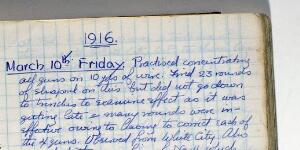 1916.
March 10th Friday. Practised concentrating
all guns on 10 yds of wire. Fired 23 rounds
of shrapnel on this but did not go down
to trenches to examine effect as it was
getting late & many rounds were in-
effective owing to having to correct each of
the 4 guns. Observed from White City. Also